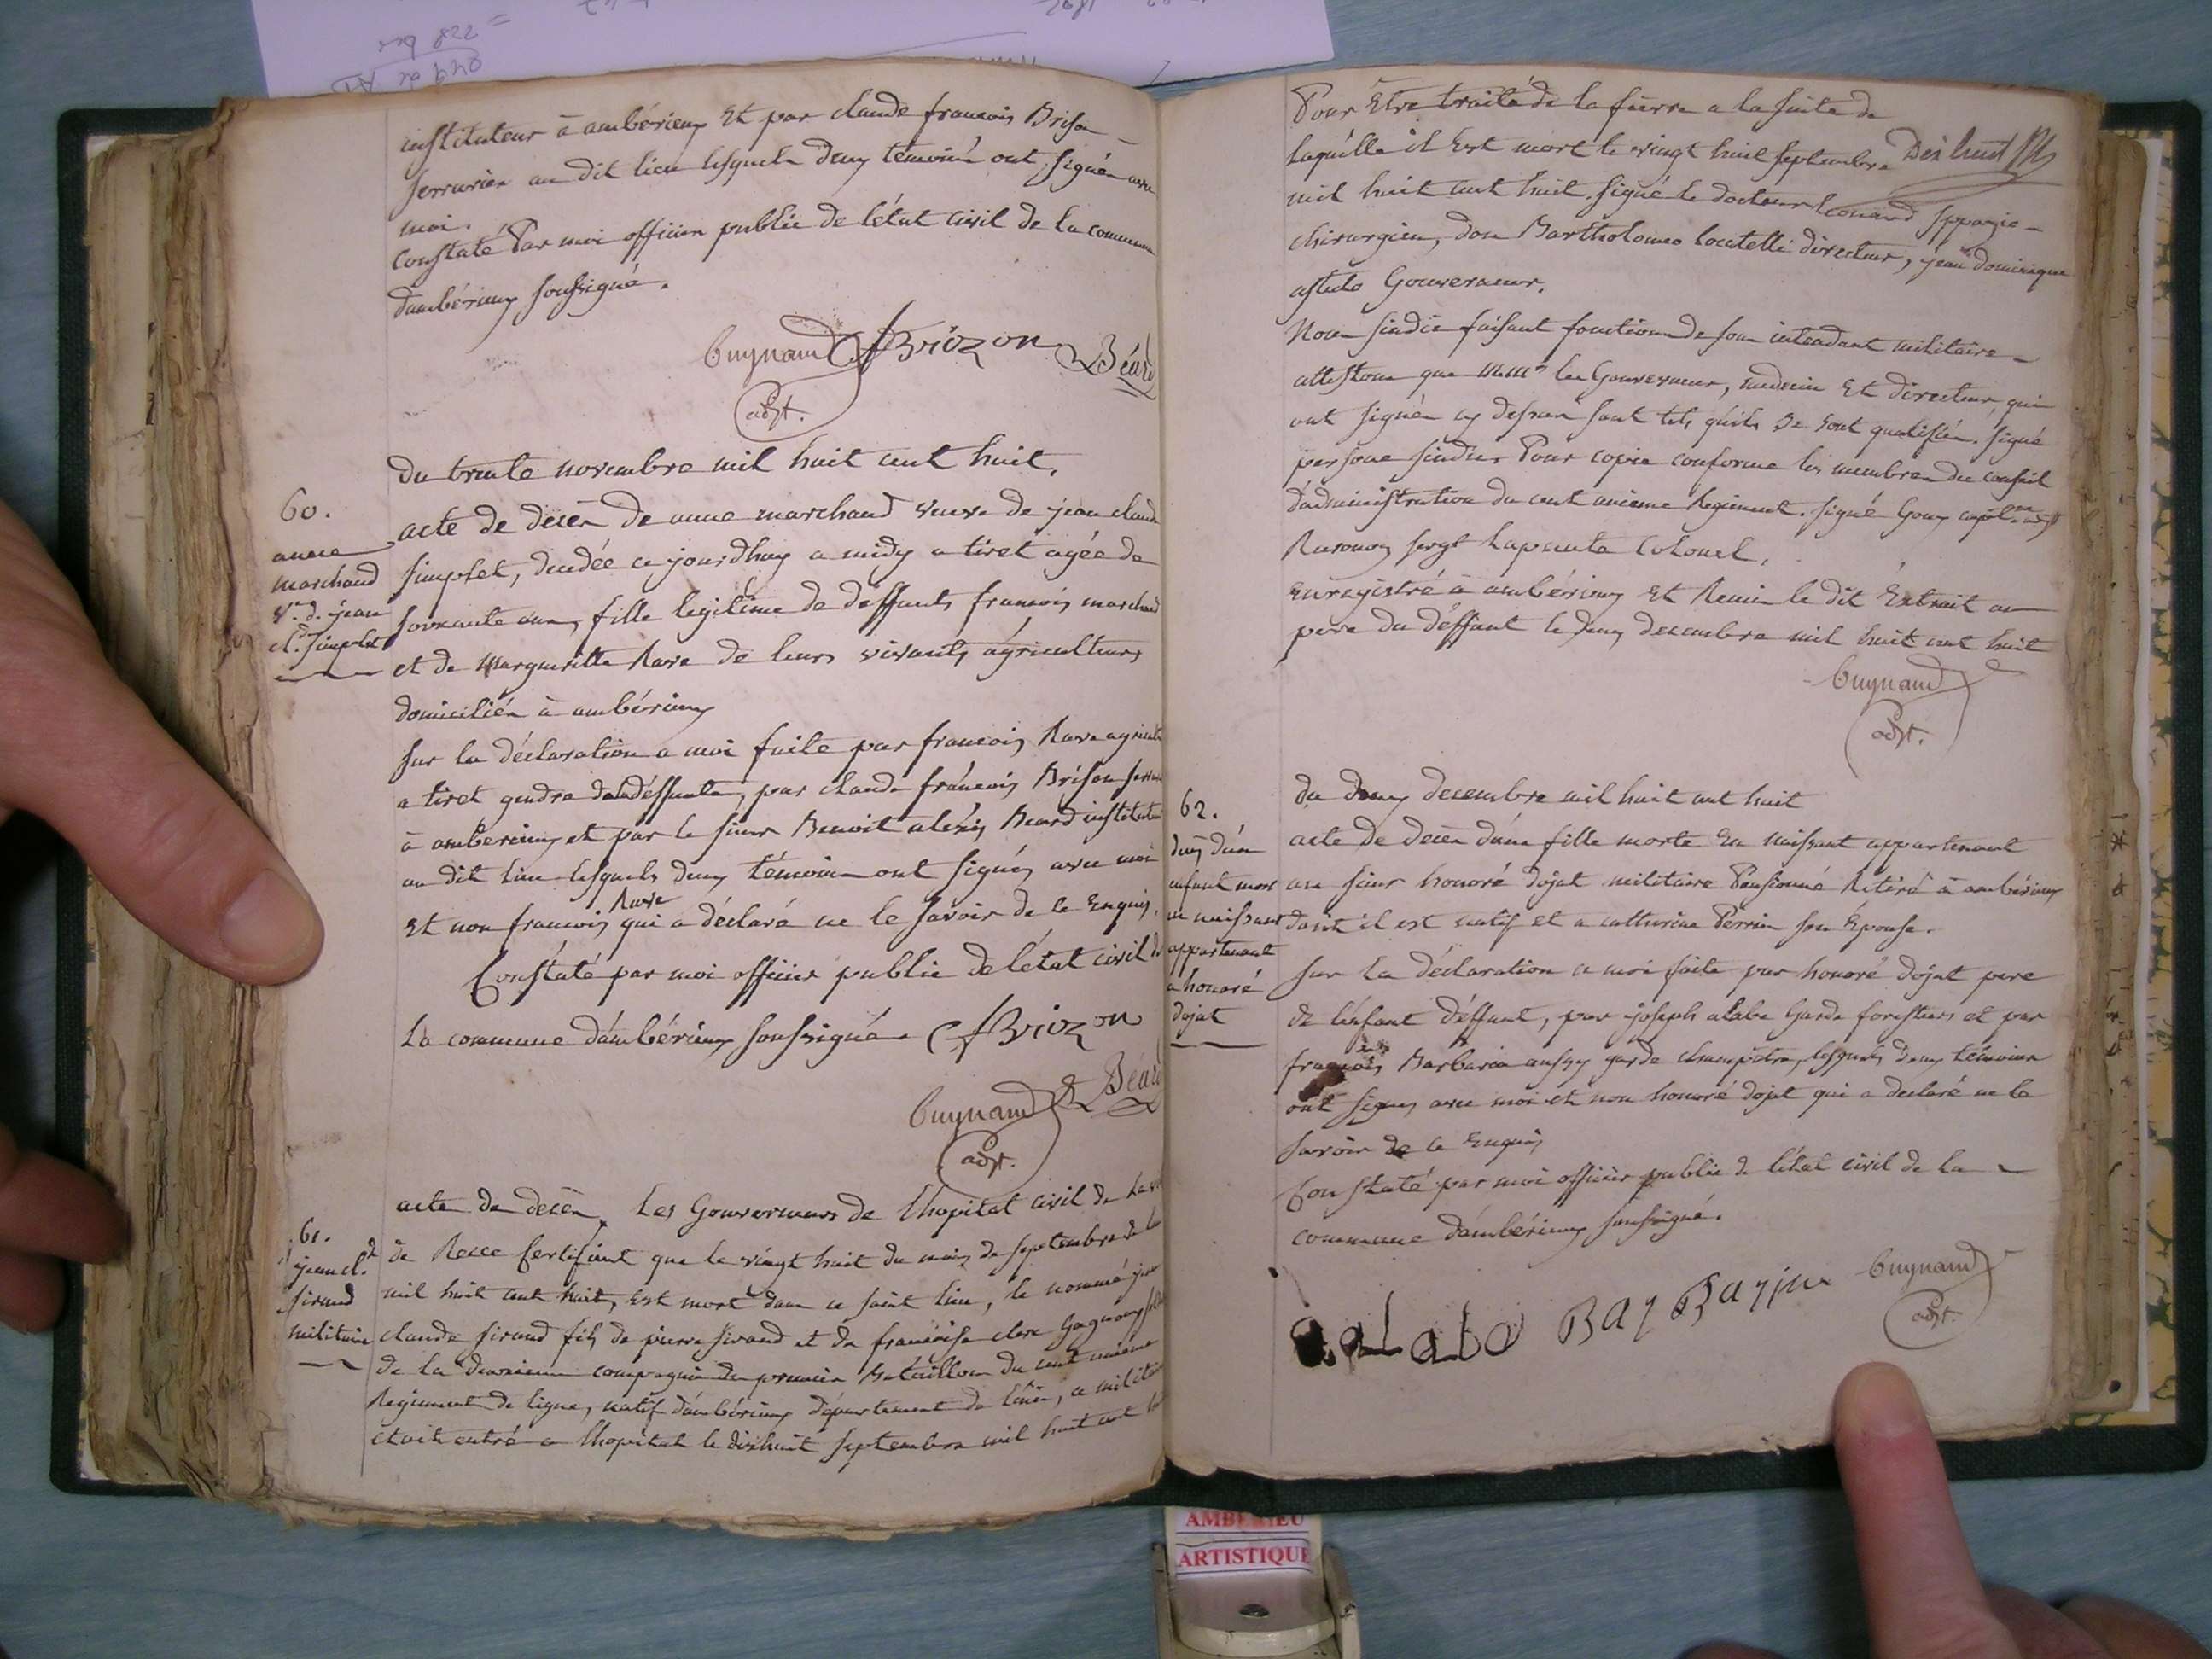 instituteur à ambérieux Et par claude francois Brison
serrurier au dit lieu lesquels deux témoins ont signés avec
moi.
Constaté Par moi officier public de l'état civil de la commune
d'ambérieux soussigné.
Guynand CfBrizon Béard
adjt.
du trente novembre mil huit cent huit.
60.
anne
marchand
Ve. d. jean
cl. simplet
acte de décès de anne marchand veuve de jean claude
simplet, décédée ce jourdhuy a midy a tiret agée de
soixante ans, fille legitime de deffunts francois marchand
et de Margueritte Rave de leurs vivants agriculteurs
domiciliés à ambérieux
sur la déclaration a moi faite par francois Rave
a tiret gendre de la déffunte, par claude francois Brison
à ambérieux et par le sieur Benoit alexis Beard instituteur
au dit lieu lesquels deux témoins ont signés avec moi
Rave
Et non francois qui a déclaré ne le savoir de ce Enquis.
Constaté par moi officier public de l'état civil de
La commune d'ambérieux soussigné. CfBrizon
Guynand Béard
adjt.
61.
jean cl.de
sirand
militaire
acte de décès. Les Gouverneurs de l'hopital civil de
de Certifient que le vingt huit du mois de septembre de
mil huit cent huit, Est mort dans ce saint lieu, le nommé jean
claude sirand fils de pierre sirand et de francoise
de la deuxieme compagnie du premier Bataillon du cent onzieme
Regiment de ligne, natif d'ambérieux département de l'ain, ce militaire
étoit entré a l'hopital le dixhuit septembre mil huit cent
Pour Etre traité de la fièvre a la suite de
laquelle il Est mort le vingt huit septembre
mil huit cent huit. signé le docteur
chirurgien, don Bartholomeo locatelli directeur, jean dominique
astuto Gouverneur.
Nous sindic faisant fonctions de sous intendant militaire
attestons que MM.rs les Gouverneur, medecin Et directeur, qui
ont signés cy dessus sont tels qu'ils se sont qualifiés. signé
persone sindic. Pour copie conforme les membres du conseil
d'administration du cent onzieme Regiment. signé Gouy
sergt Lapointe Colonel.
Enregistré à ambérieux Et Remis le dit Extrait au
pere du déffunt le deux decembre mil huit cent huit
Guynand
adjt.
du deux decembre mil huit cent huit
62.
d'un
enfant mort
en naissant
appartenant
a honoré
dojat
acte de decès d'une fille morte En naissant appartenant
au sieur honoré dojat militaire Pensionné Retiré à ambérieux
dont il est natif et a catherine Perrin son Epouse.
sur la déclaration a moi faite par honoré dojat pere
de l'enfant déffunt, par joseph alabe Garde forestiers et par
francois Barbarin aussy garde champêtre, lesquels deux témoins
ont signés avec moi et non honoré dojat qui a declaré ne le
savoir de ce Enquis
Constaté par moi officier public de l'état civil de la
commune d'ambérieux soussigné.
Guynand
adjt.
AMBERIEU
ARTISTIQUE